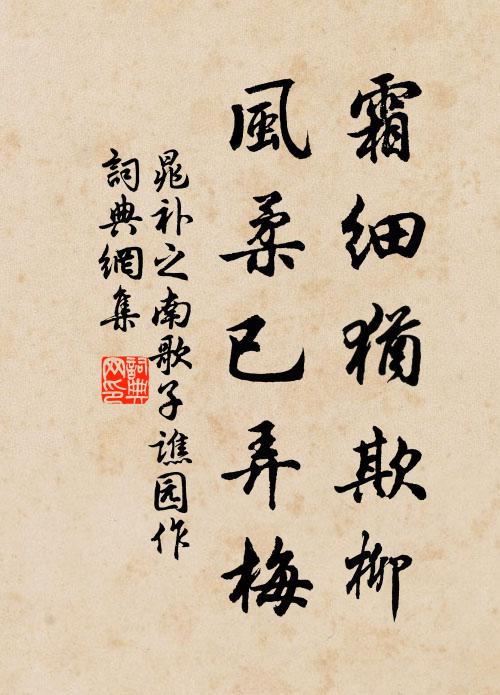 霜细猶欺柳
風柔已弄梅
晁补之南歌子譙园作
詞典網集
詞典网印